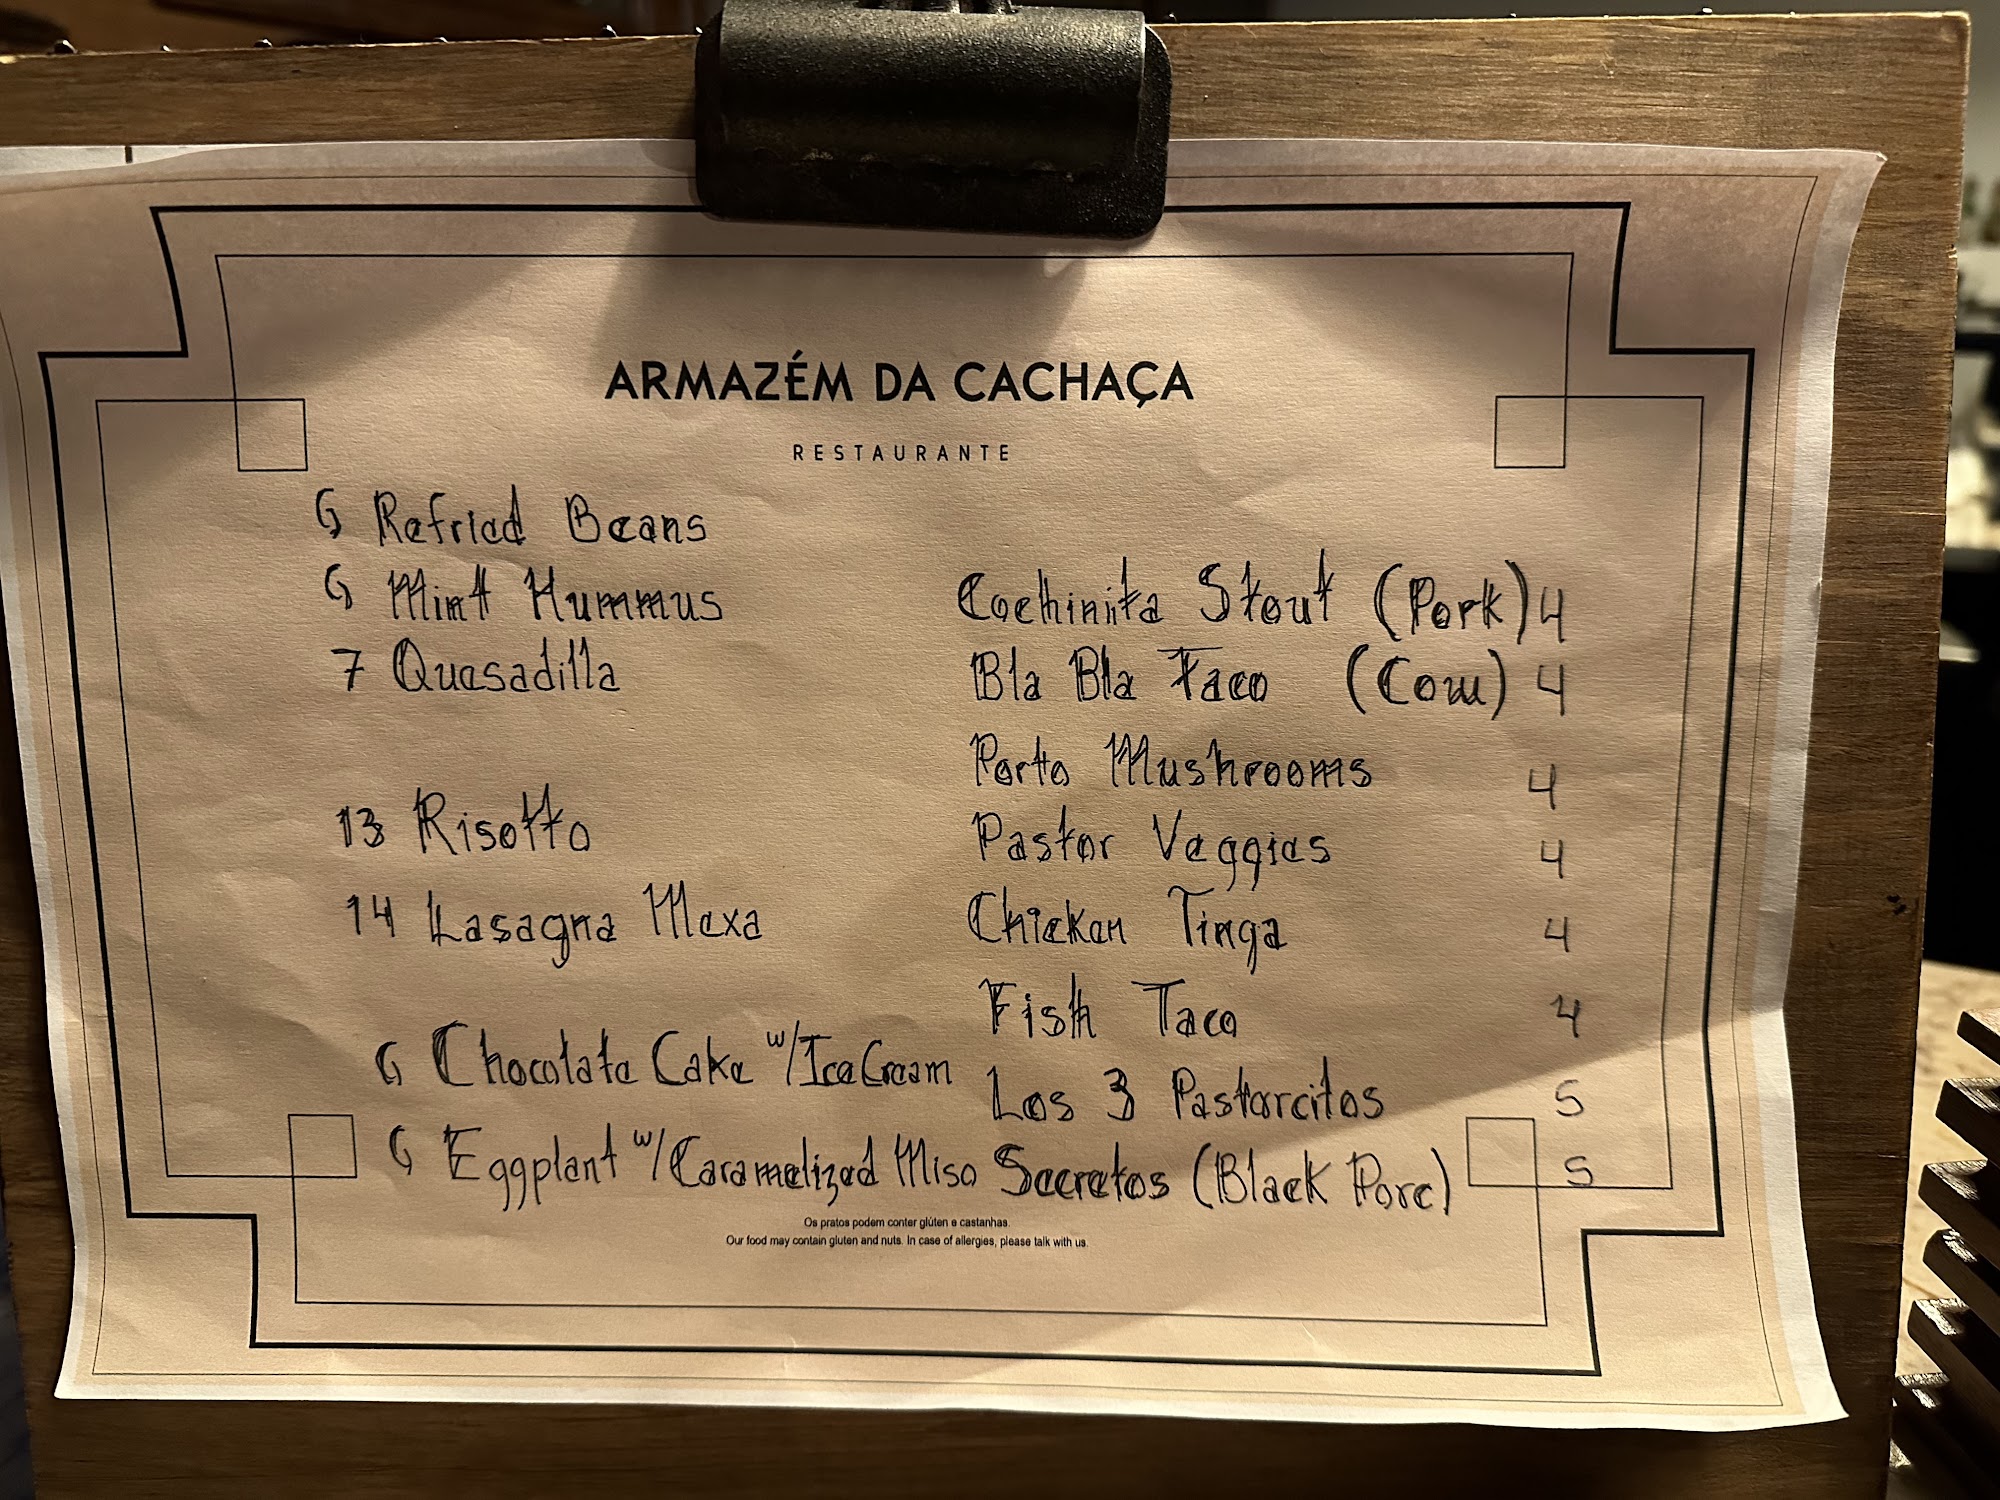 ARMAZÉM DA CACHAÇA
RESTAURANTE
6 Refried Beans
6 Mint Hummus
7 Quesadilla
13 Risotto
14 Lasagna Mexa
6 Chocolate Cake w/Ice Cream
6 Eggplant w/Caramelized Miso
Cochinita Stout (Pork) 4
Bla Bla Taco (Cow) 4
Porto Mushrooms 4
Pastor Veggies 4
Chicken Tinga 4
Fish Taco 4
Los 3 Pastorcitos 5
Secretos (Black Porc) 5
Os pratos podem conter glúten e castanhas.
Our food may contain gluten and nuts. In case of allergies, please talk with us.